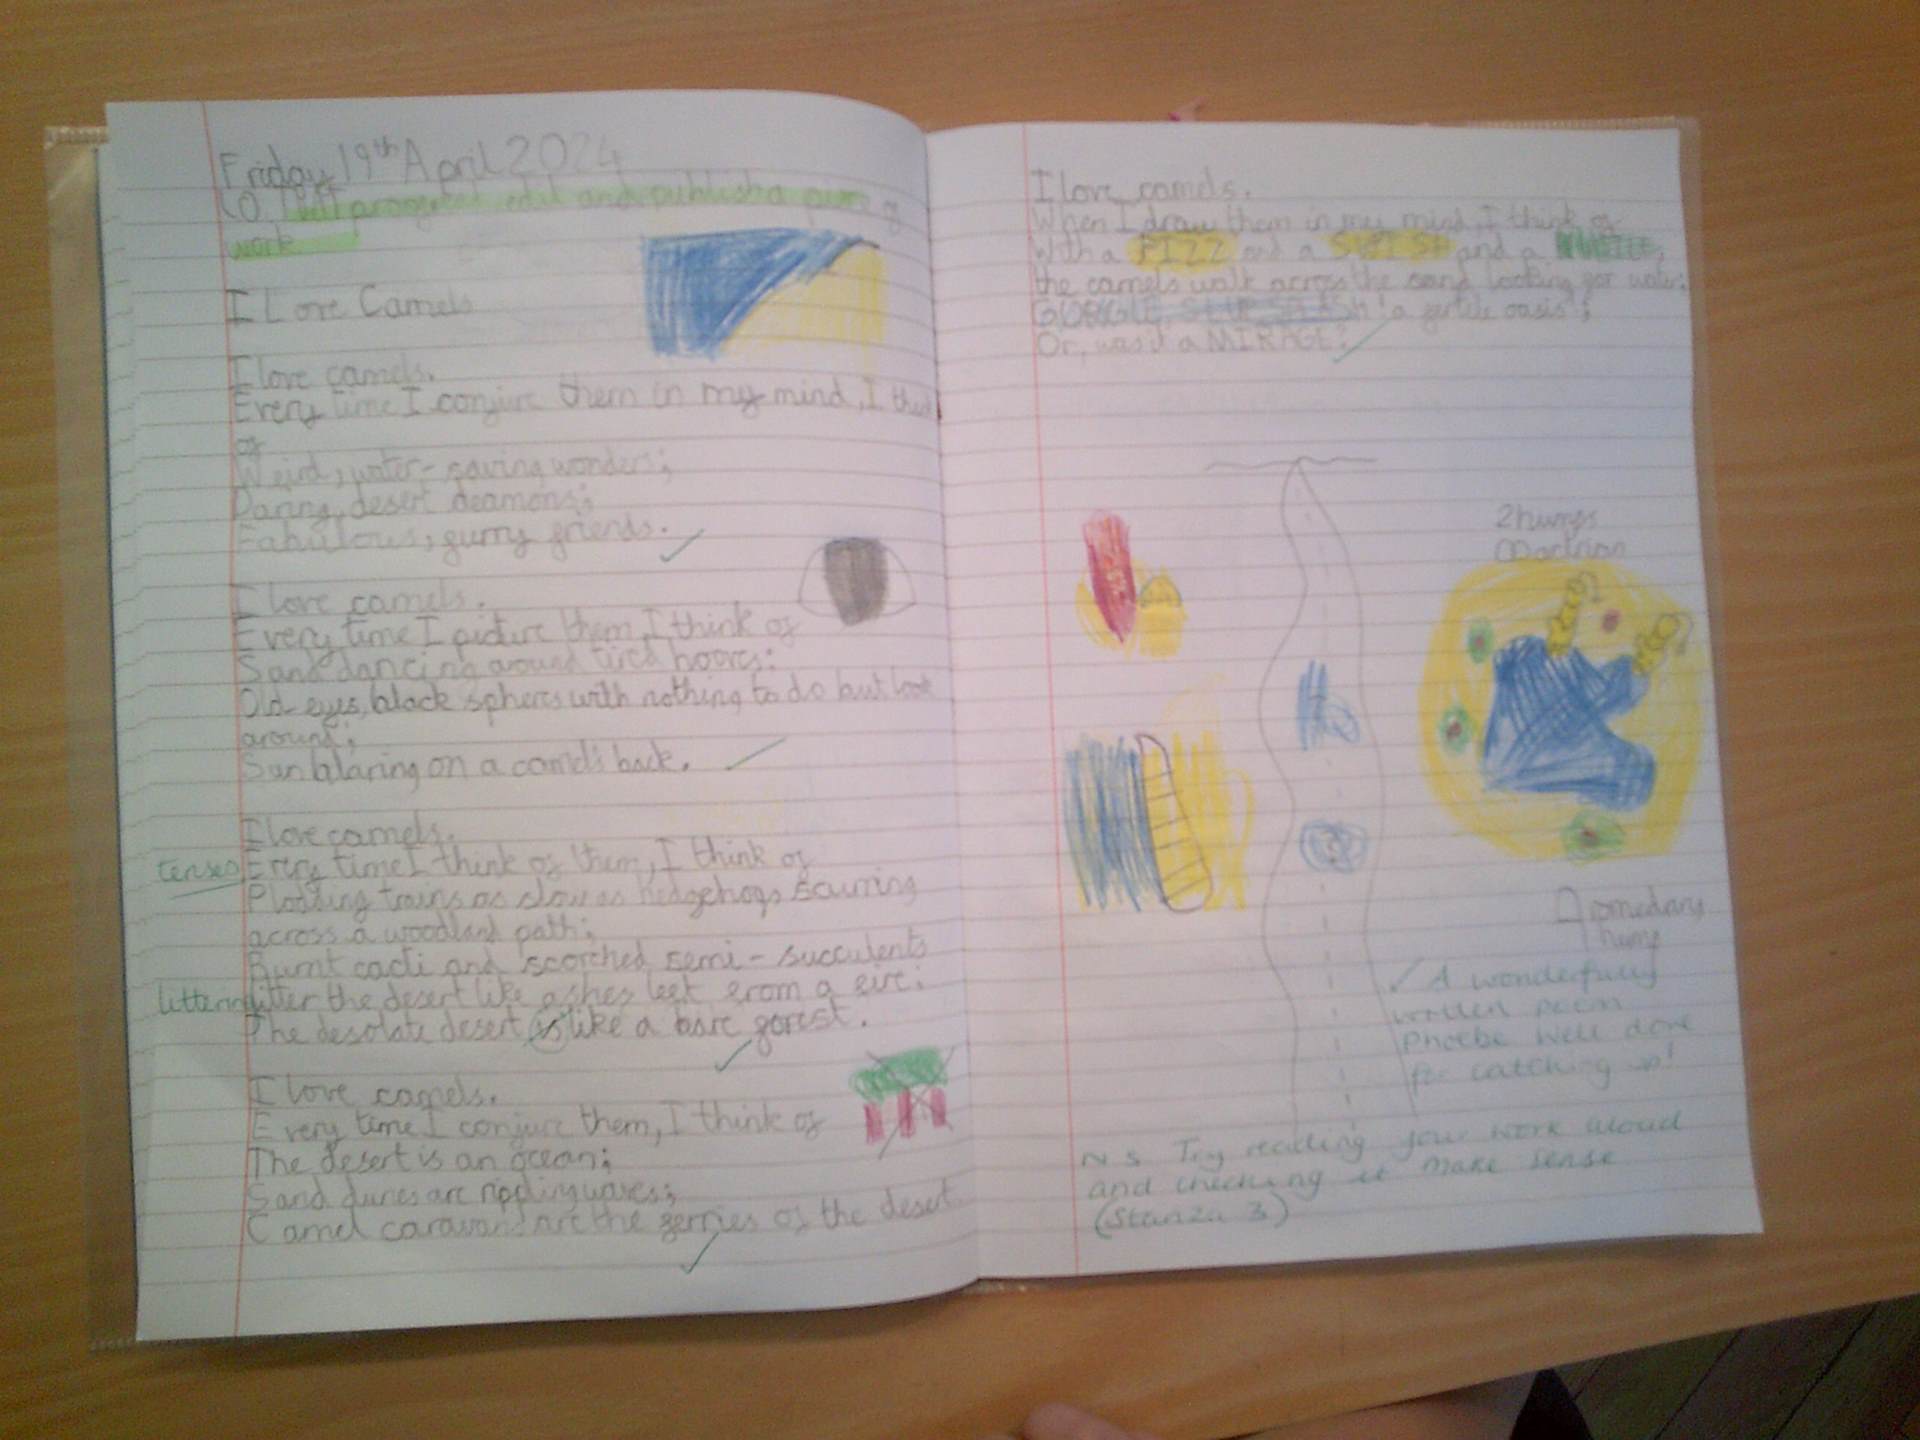 Friday 19th April 2024
LO: edit and publish a
work
I Love Camels
I love camels.
Every time I conjure them in my mind, I think
of
Weird, water-saving wonders;
Daring, desert deamons;
Fabulous, furry friends.
I love camels.
Every time I picture them, I think of
Sand dancing around tired hooves;
Old eyes, black spheres with nothing to do but look
around;
Sun blaring on a camel's back.
I love camels.
tenses Every time I think of them, I think of
Plodding trains as slow as hedgehogs scurring
across a woodland path;
Burnt cacti and scorched semi-succulents
littering litter the desert like ashes left from a fire;
The desolate desert is like a bare forest.
I love camels.
Every time I conjure them, I think of
The desert is an ocean;
Sand dunes are rippling waves;
Camel caravans are the ferries of the desert
I love camels.
When I draw them in my mind, I think of
With a FIZZ and a and a
the camels walk across the sand looking for water.
a fertile oasis!;
Or, was it a MIRAGE?
2 humps
Bactrian
Dromedary
hump
A wonderfully
written poem
Phoebe well done
for catching up!
N S Try reading your work aloud
and checking it make sense
(Stanza 3)